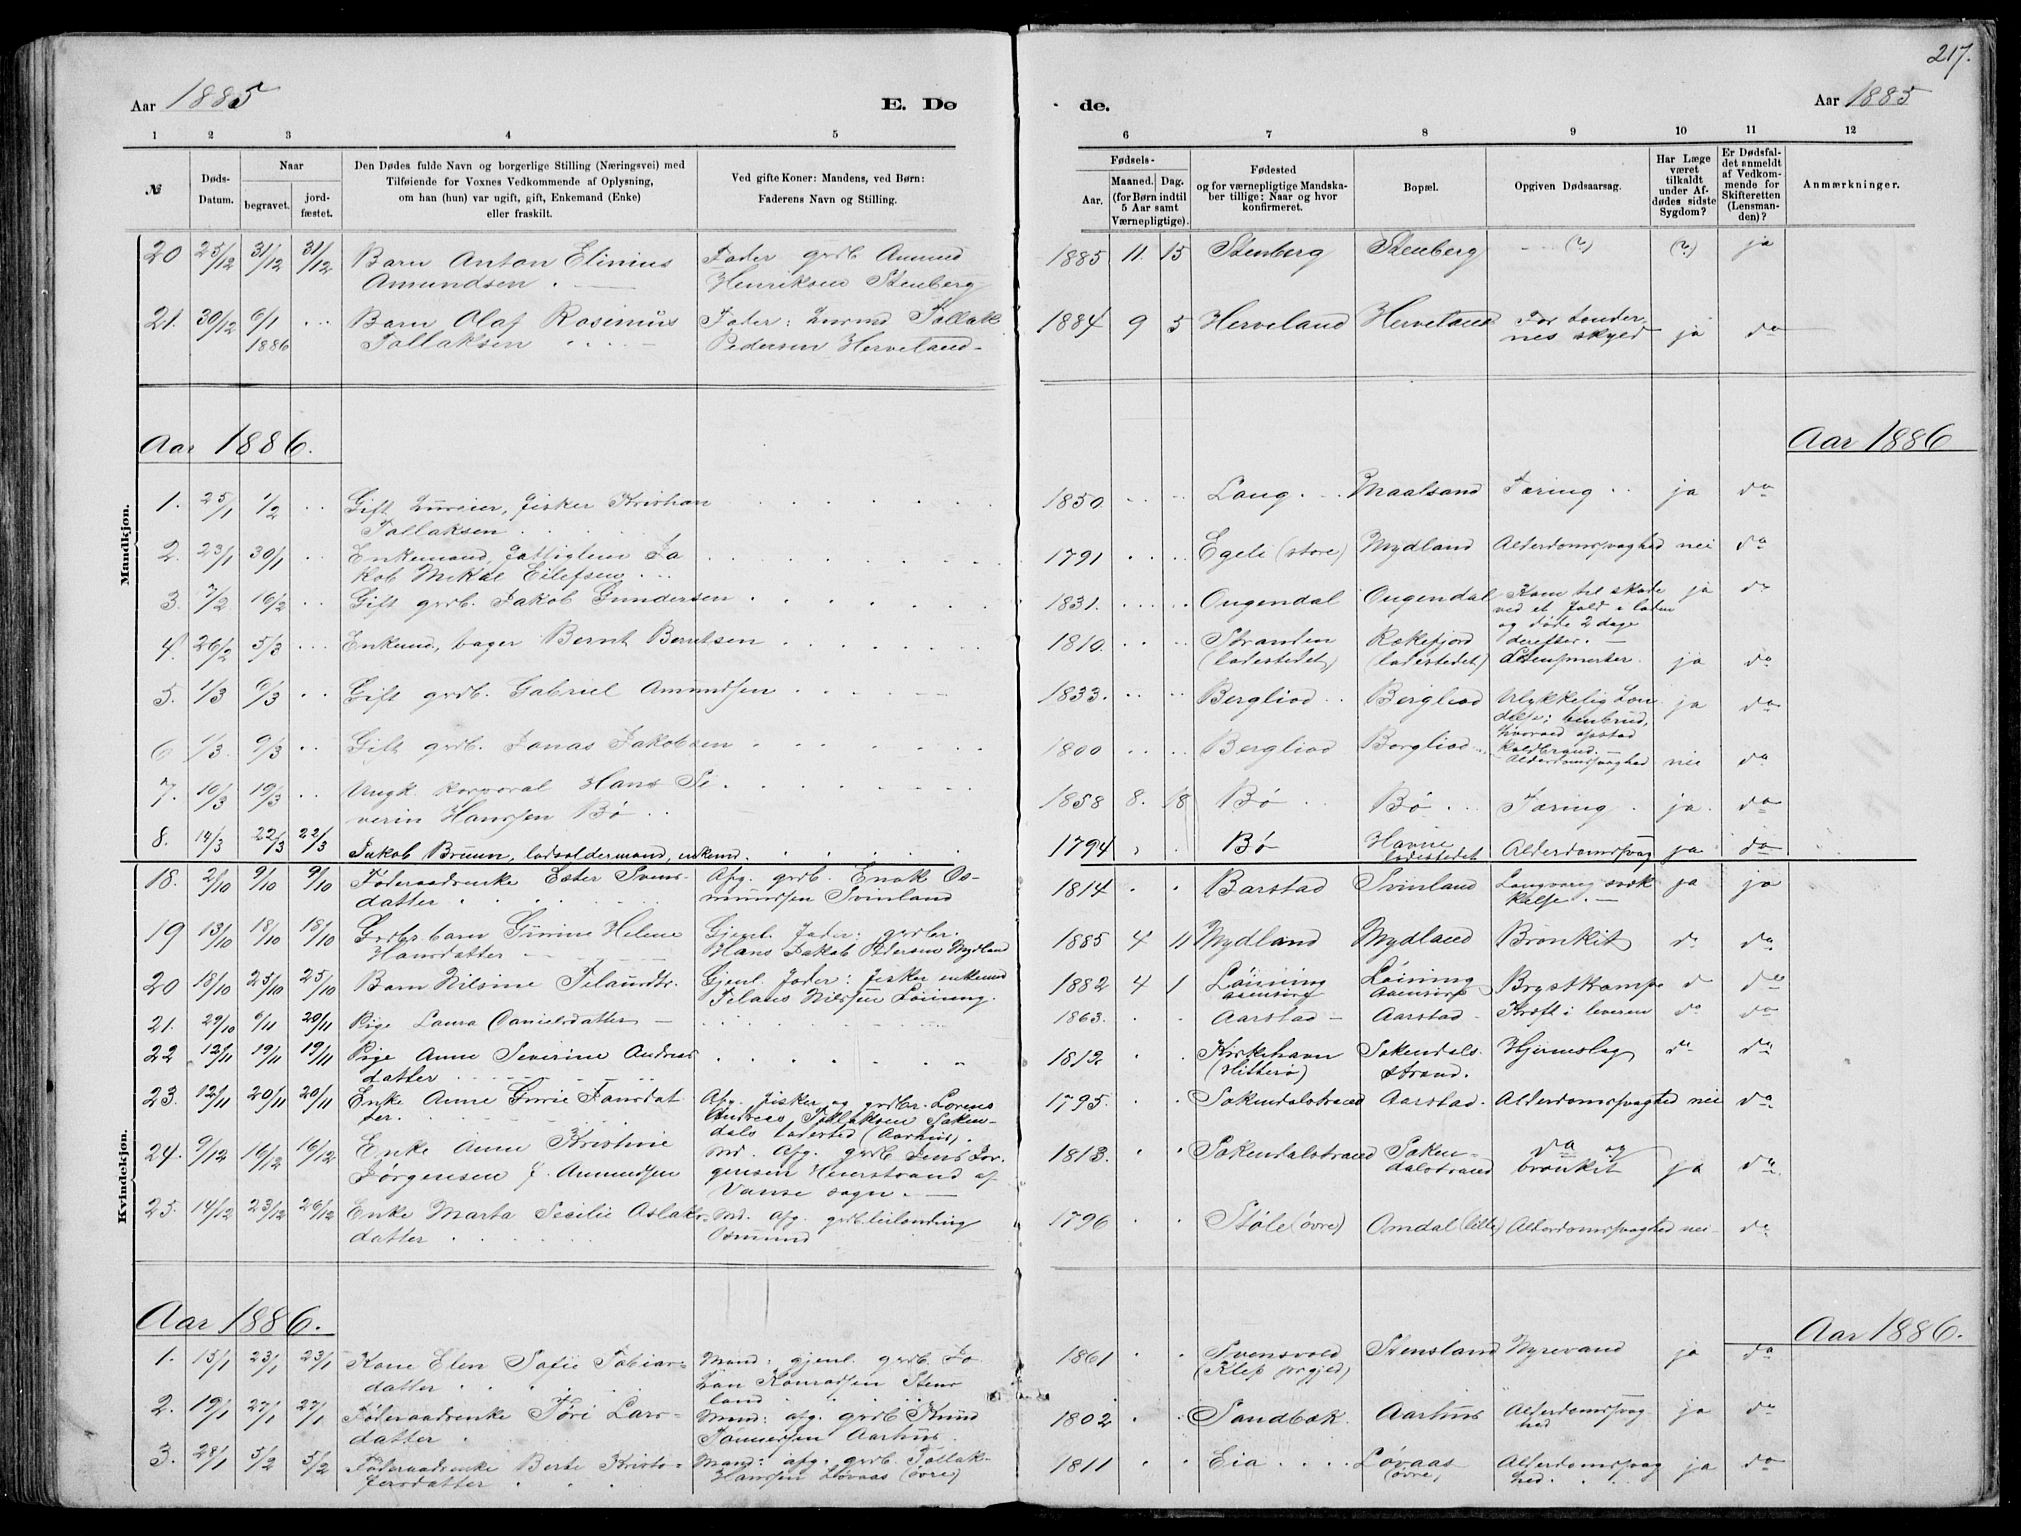 217.
Aar 1885
E. Dø
de.
Aar 1885
1 2 3 4 5 6 7 8 9 10 11 12
№
Døds-Datum.
Naar
begravet.
jordfæstet.
Den Dødes fulde Navn og borgerlige Stilling (Næringsvei) med
Tilføiende for Voxnes Vedkommende af Oplysning,
om han (hun) var ugift, gift, Enkemand (Enke)
eller fraskilt.
Ved gifte Koner: Mandens, ved Børn:
Faderens Navn og Stilling.
Fødsels-
Aar.
Maaned. Dag.
(for Børn indtil
5 Aar samt
Værnepligtige).
Fødested
og for værnepligtige Mandska-
ber tillige: Naar og hvor
konfirmeret.
Bopæl.
Opgiven Dødsaarsag.
Har Læge
været
tilkaldt
under Af-
dødes sidste
Sygdom?
Er Dødsfal-
det anmeldt
af Vedkom-
mende for
Skifteretten
(Lensman-
den)?
Anmærkninger.
Mandkjøn.
20 25/12 31/12 31/12 Barn Anton Elinius Fader grdb. Amund 1885 11. 15 Stenberg Stenberg (?) (?) ja
Amundsen Henriksen Stenberg
21. 30/12 6/1 Barn Olaf Rosinius Fader: Tollak 1884 9 5 Herveland Herveland ja do
1886 Tollaksen Pedersen Herveland nes skyld
Aar 1886.
Aar 1886
1. 25/1 1/2 Gift fisker Kristian 1850 Maalsand Tæring ja do
Tollaksen
2. 23/1 30/1 Enkemand, fattiglem Ja 1791 Egeli (store) Mydland Alderdomssvaghed nei do
kob Mikal Eilefsen
3. 7/2 16/2 Gift grdb. Jakob Gundersen 1831. Ougendal Ougendal Kom til skade ja do
ved et fald i laden
og døde 2 dage
derefter.
4. 26/2 5/3 Enkemd, bager Bernt Berntsen 1810 Stranden Rekefjord ja do
(ladestedet) (ladestedet)
5. 1/3 6/3 Gift grdb. Gabriel Amundsen 1833. Bergliod Bergliod Ulykkelig hæn ja do
delse; benbrud,
hvorved opstod
Koldbrand.
6 1/3. 9/3 Gift grdb. Jonas Jakobsen 1800 Bergliod Bergliod Alderdomssvaghed nei do
7. 10/3 19/3 Ungk. korporal Hans Se 1858 8. 18 Bø Bø Tæring ja. do
verin Hanssen Bø
8. 14/3 22/3 22/3 Jakob Bruun, lodsoldermand, enkemd. 1794 Bø Havne Alderdomssvag ja do
ladestedet
Kvindekjøn.
18. 2/10 9/10 9/10 Føderaadsenke Ester Svens- Afg. grdb. Enok Os- 1814 Barstad Svinland Langvarig svæk ja ja
datter mundsen Svinland kelse.
19 13/10 18/10 18/10 Grdbr. barn Gurine Helene Gjenl. Fader: grdbr. 1885 4 11 Mydland Mydland Bronkit do do
Hansdatter Hans Jakob Pedersen Mydland
20 18/10 25/10 25/10 Barn Nilsine Gjenl. Fader: fisker enkemd 1882 4 1 Løining Løining Brystkrampe d do
Nilssen Løining.
21. 29/10 6/11 20/11 Pige Laura Danielsdatter 1863. Aarstad Aarstad Kræft i leveren do do
22 12/11 19/11 19/11 Pige Anne Severine Andreas 1812 Kirkehavn Sokendals Hjerneslag do do
datter (Hitterø) strand.
23. 12/11 20/11 20/11 Enke Anne Gurie Tønesdat Afg. fisker og grdbr. Lorens 1795. Sokendalsstrand Aarstad Alderdomssvaghed nei do
ter. Andreas Tollaksen Soken-
dals ladested (Aarhus).
24. 9/12 16/12 16/12 Enke Anne Kristine Md. Afg. grdb Jens Jør 1813. Sokendalsstrand Soken- do og
Jørgensen f. Amundsen gensen Heierstrand af dalsstrand bronkit ja do
Vanse sogn.
25. 14/12 23/12 26/12 Enke Marta Secilie Aslaks- Md. afg. 1796 Støle (øvre) Omdal (lille) Alderdomssvaghed nei do
datter Osmund
Aar 1886.
Aar 1886.
1. 15/1 23/1 23/1 Kone Elen Sofie Tobias- Mand: gjenl. grdb. Jo 1861 Svensvold Stensland Nyrevand ja do
datter han Konradsen Stens (Klep prgjed)
land
2. 19/1 27/1 27/1 Føderaadsenke Jøri Lars- Mand: afg. grdb Knud 1802 Sandbæk. Aarhus Alderdomssvag ja do
datter Tønnesen Aarhus. hed
3. 28/1 5/2 5/2 Føderaadsenke Berte Kristo- Mand: afg. grdb. Tollak 1811 Eia Løvaas Alderdomssvag ja do
fersdatter Hanssen Løvaas (øvre) (øvre) hed